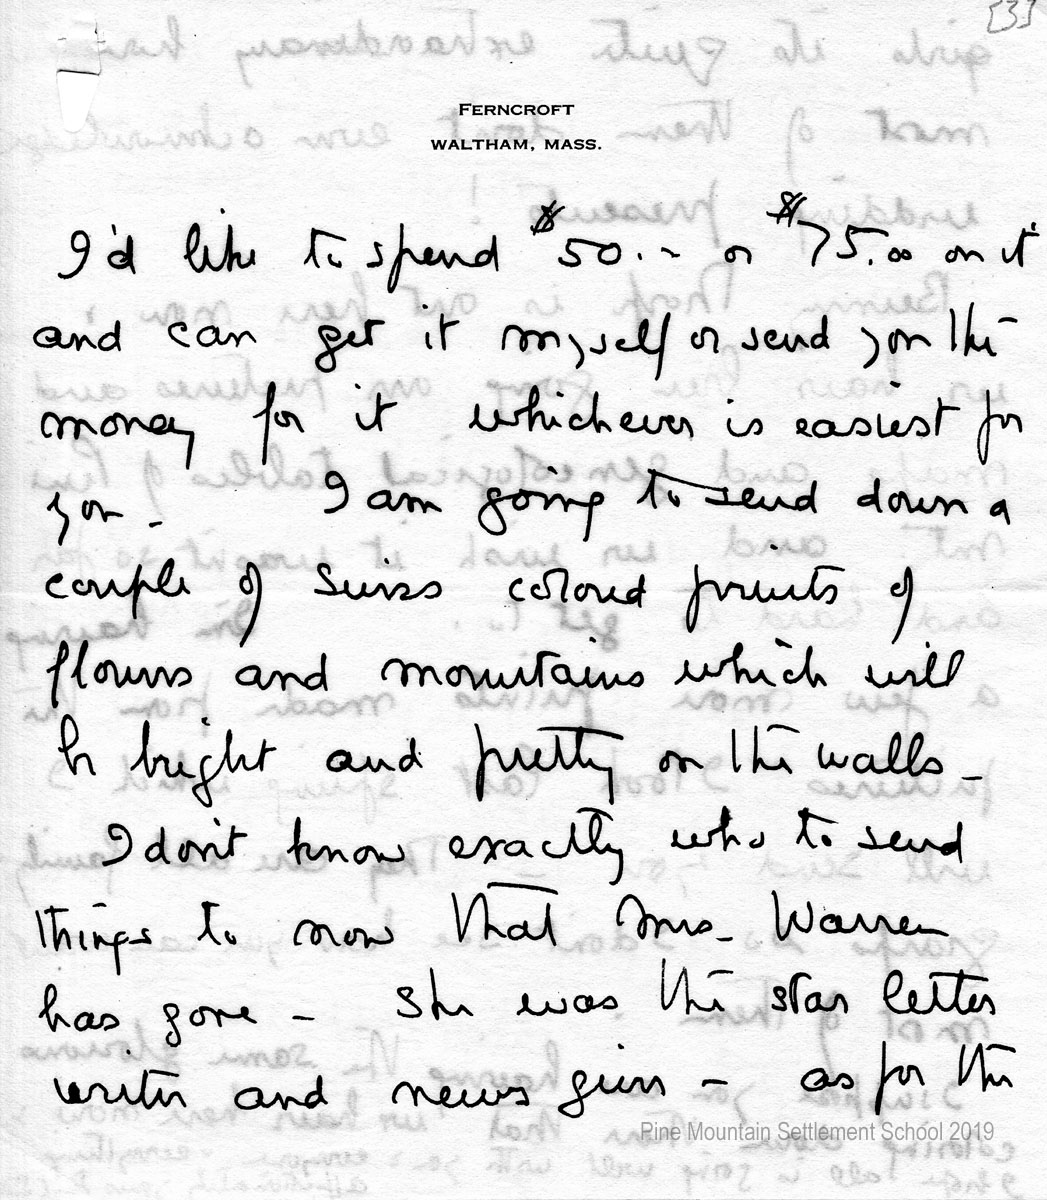 [3]
FERNCROFT
WALTHAM, MASS.
I'd like to spend $50.– or $75.00 on it
and can get it myself or send you the
money for it whichever is easiest for
you – I am going to send down a
couple of Swiss colored prints of
flowers and mountains which will
be bright and pretty on the walls –
I don't know exactly who to send
things to now that Mrs – Warren
has gone – She was the star letter
writer and news giver – as for the
Pine Mountain Settlement School 2019